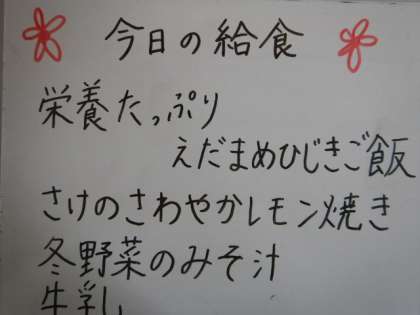 今日の給食
栄養たっぷり
えだまめひじきご飯
さけのさわやかレモン焼き
冬野菜のみそ汁
牛乳